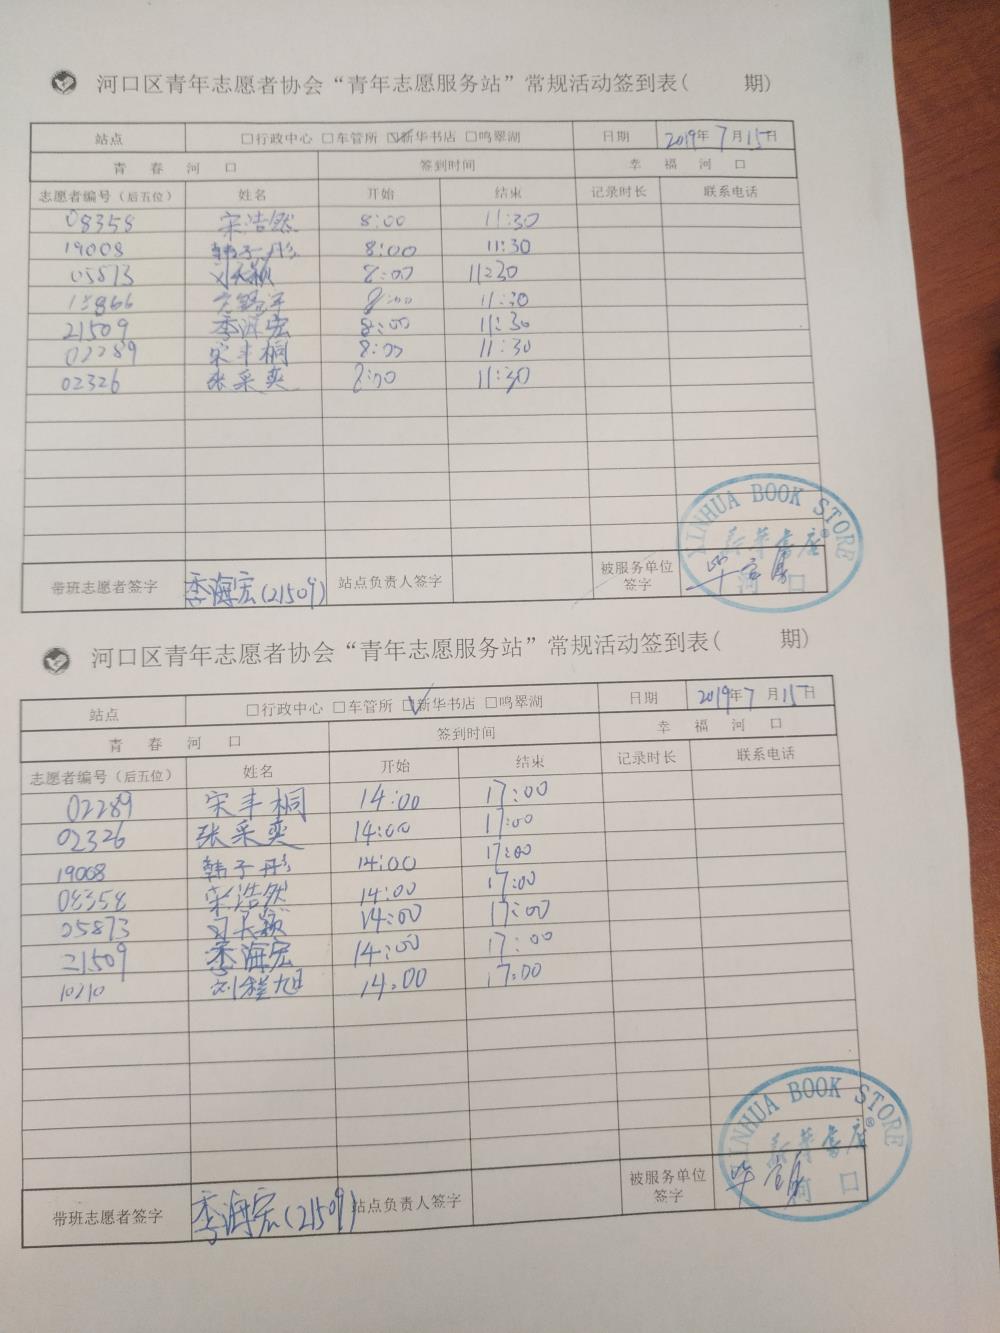 河口区青年志愿者协会“青年志愿服务站”常规活动签到表( 期)
站点 □行政中心 □车管所 ☑新华书店 □鸣翠湖 日期 2019年7月15日
青 春 河 口 签到时间 幸 福 河 口
志愿者编号（后五位） 姓名 开始 结束 记录时长 联系电话
08358 宋浩然 8:00 11:30
19008 韩子彤 8:00 11:30
05873 刘天颖 8:00 11:30
8:00 11:30
21509 李海宏 8:00 11:30
02289 宋丰桐 8:00 11:30
02326 张采奕 8:00 11:30
带班志愿者签字 李海宏(21509) 站点负责人签字 被服务单位签字
XINHUA BOOK STORE®
新华书店
河口
河口区青年志愿者协会“青年志愿服务站”常规活动签到表( 期)
站点 □行政中心 □车管所 ☑新华书店 □鸣翠湖 日期 2019年7月15日
青 春 河 口 签到时间 幸 福 河 口
志愿者编号（后五位） 姓名 开始 结束 记录时长 联系电话
02289 宋丰桐 14:00 17:00
02326 张采奕 14:00 17:00
19008 韩子彤 14:00 17:00
08358 宋浩然 14:00 17:00
05873 刘天颖 14:00 17:00
21509 李海宏 14:00 17:00
10210 刘程旭 14:00 17:00
带班志愿者签字 李海宏(21509) 站点负责人签字 被服务单位签字
XINHUA BOOK STORE®
新华书店
河口